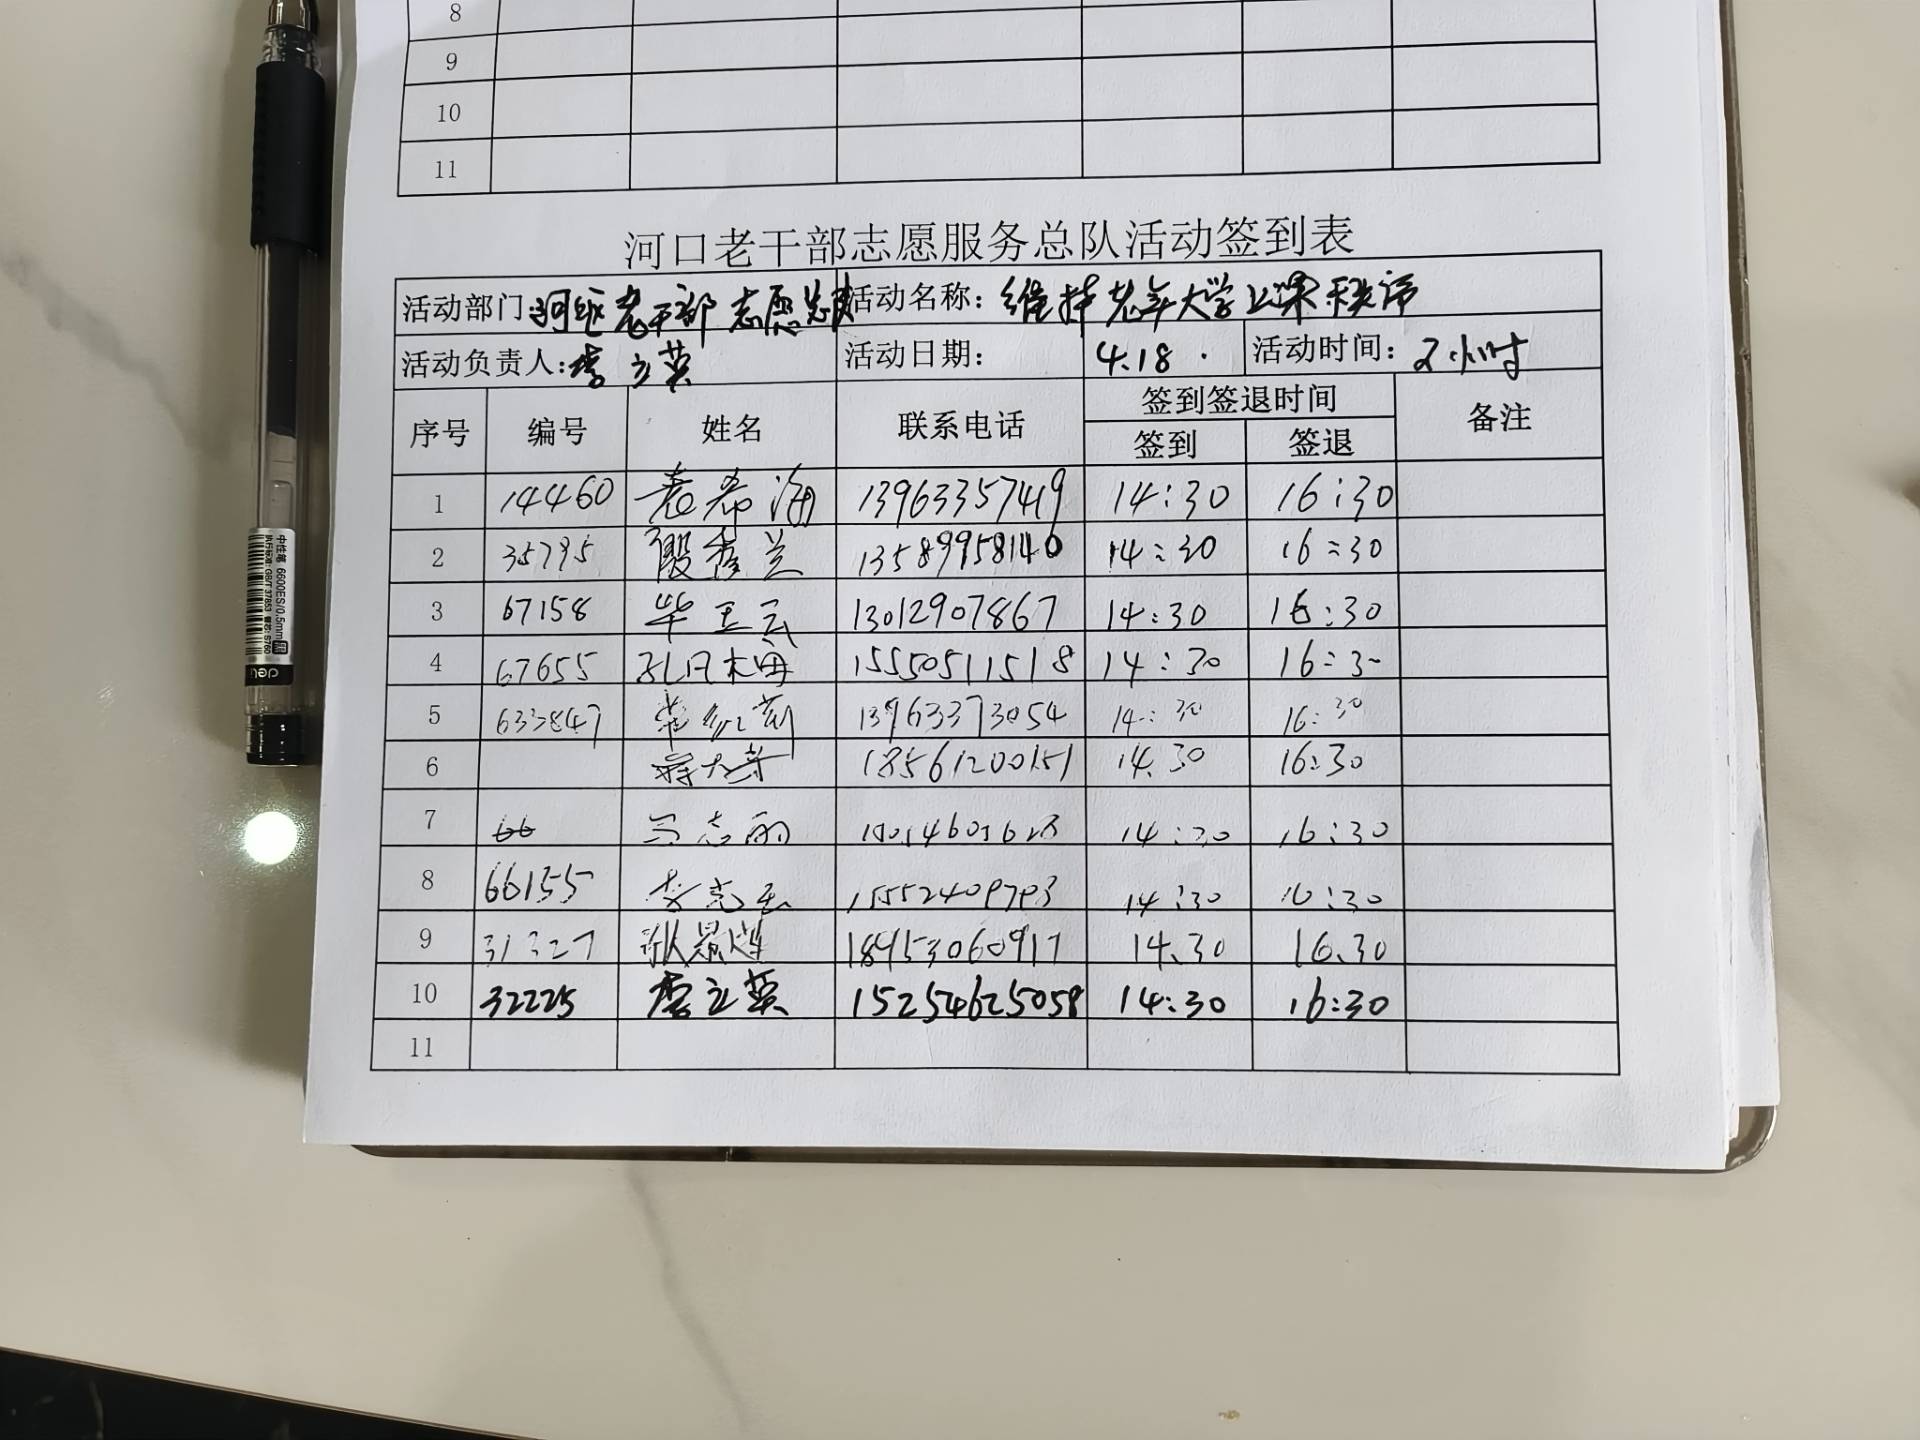 8
9
10
11
河口老干部志愿服务总队活动签到表
活动部门:河口区老干部志愿总队 活动名称: 维持老年大学上课秩序
活动负责人:李立英 活动日期: 4.18. 活动时间: 2小时
序号 编号 姓名 联系电话 签到签退时间 备注
签到 签退
1 14460 袁希海 13963357419 14:30 16:30
2 35795 殷秀兰 13589958140 14:30 16:30
3 67158 毕玉云 13012907867 14:30 16:30
4 67655 孔凤梅 15550511518 14:30 16:3
5 13963373054 14:30 16:30
6 18561200151 14.30 16:30
7 志丽 14:30 16:30
8 66155 李志玉 14:30 16:30
9 31327 张景莲 18953060917 14.30 16.30
10 32225 李立英 15254625058 14:30 16:30
11
中性笔 6600ES/0.5mm
deli